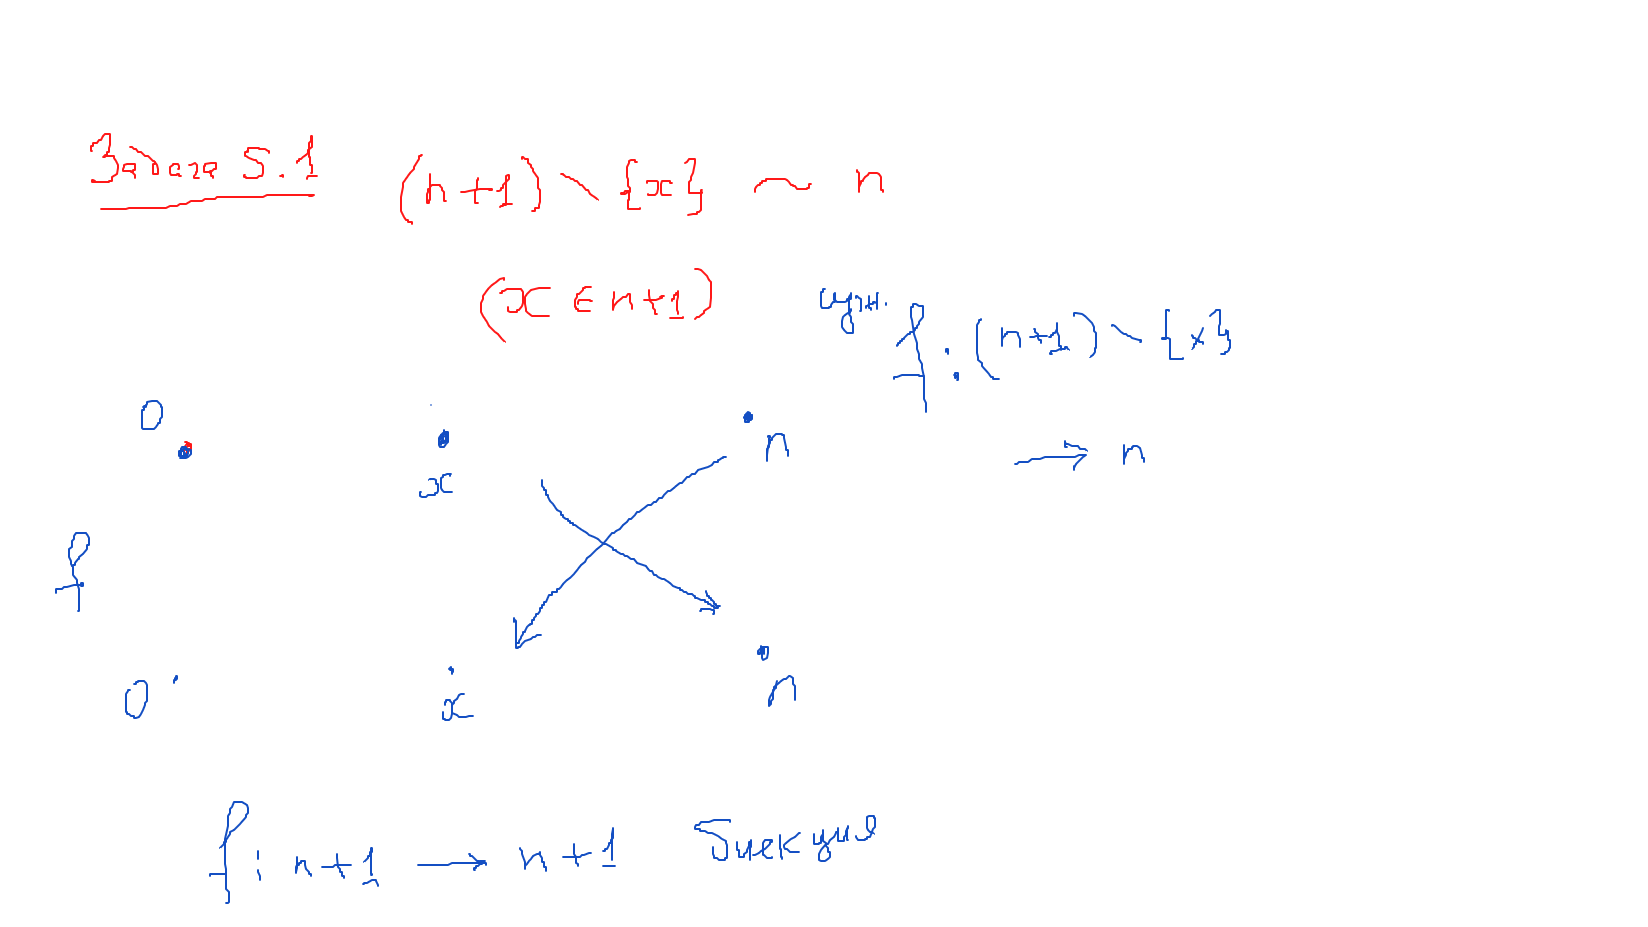 Задача 5.1 (n+1) \ {x} ~ n
(x ∈ n+1)
суж. f : (n+1) \ {x}
→ n
0 x n
f
0 x n
f : n+1 → n+1 биекция